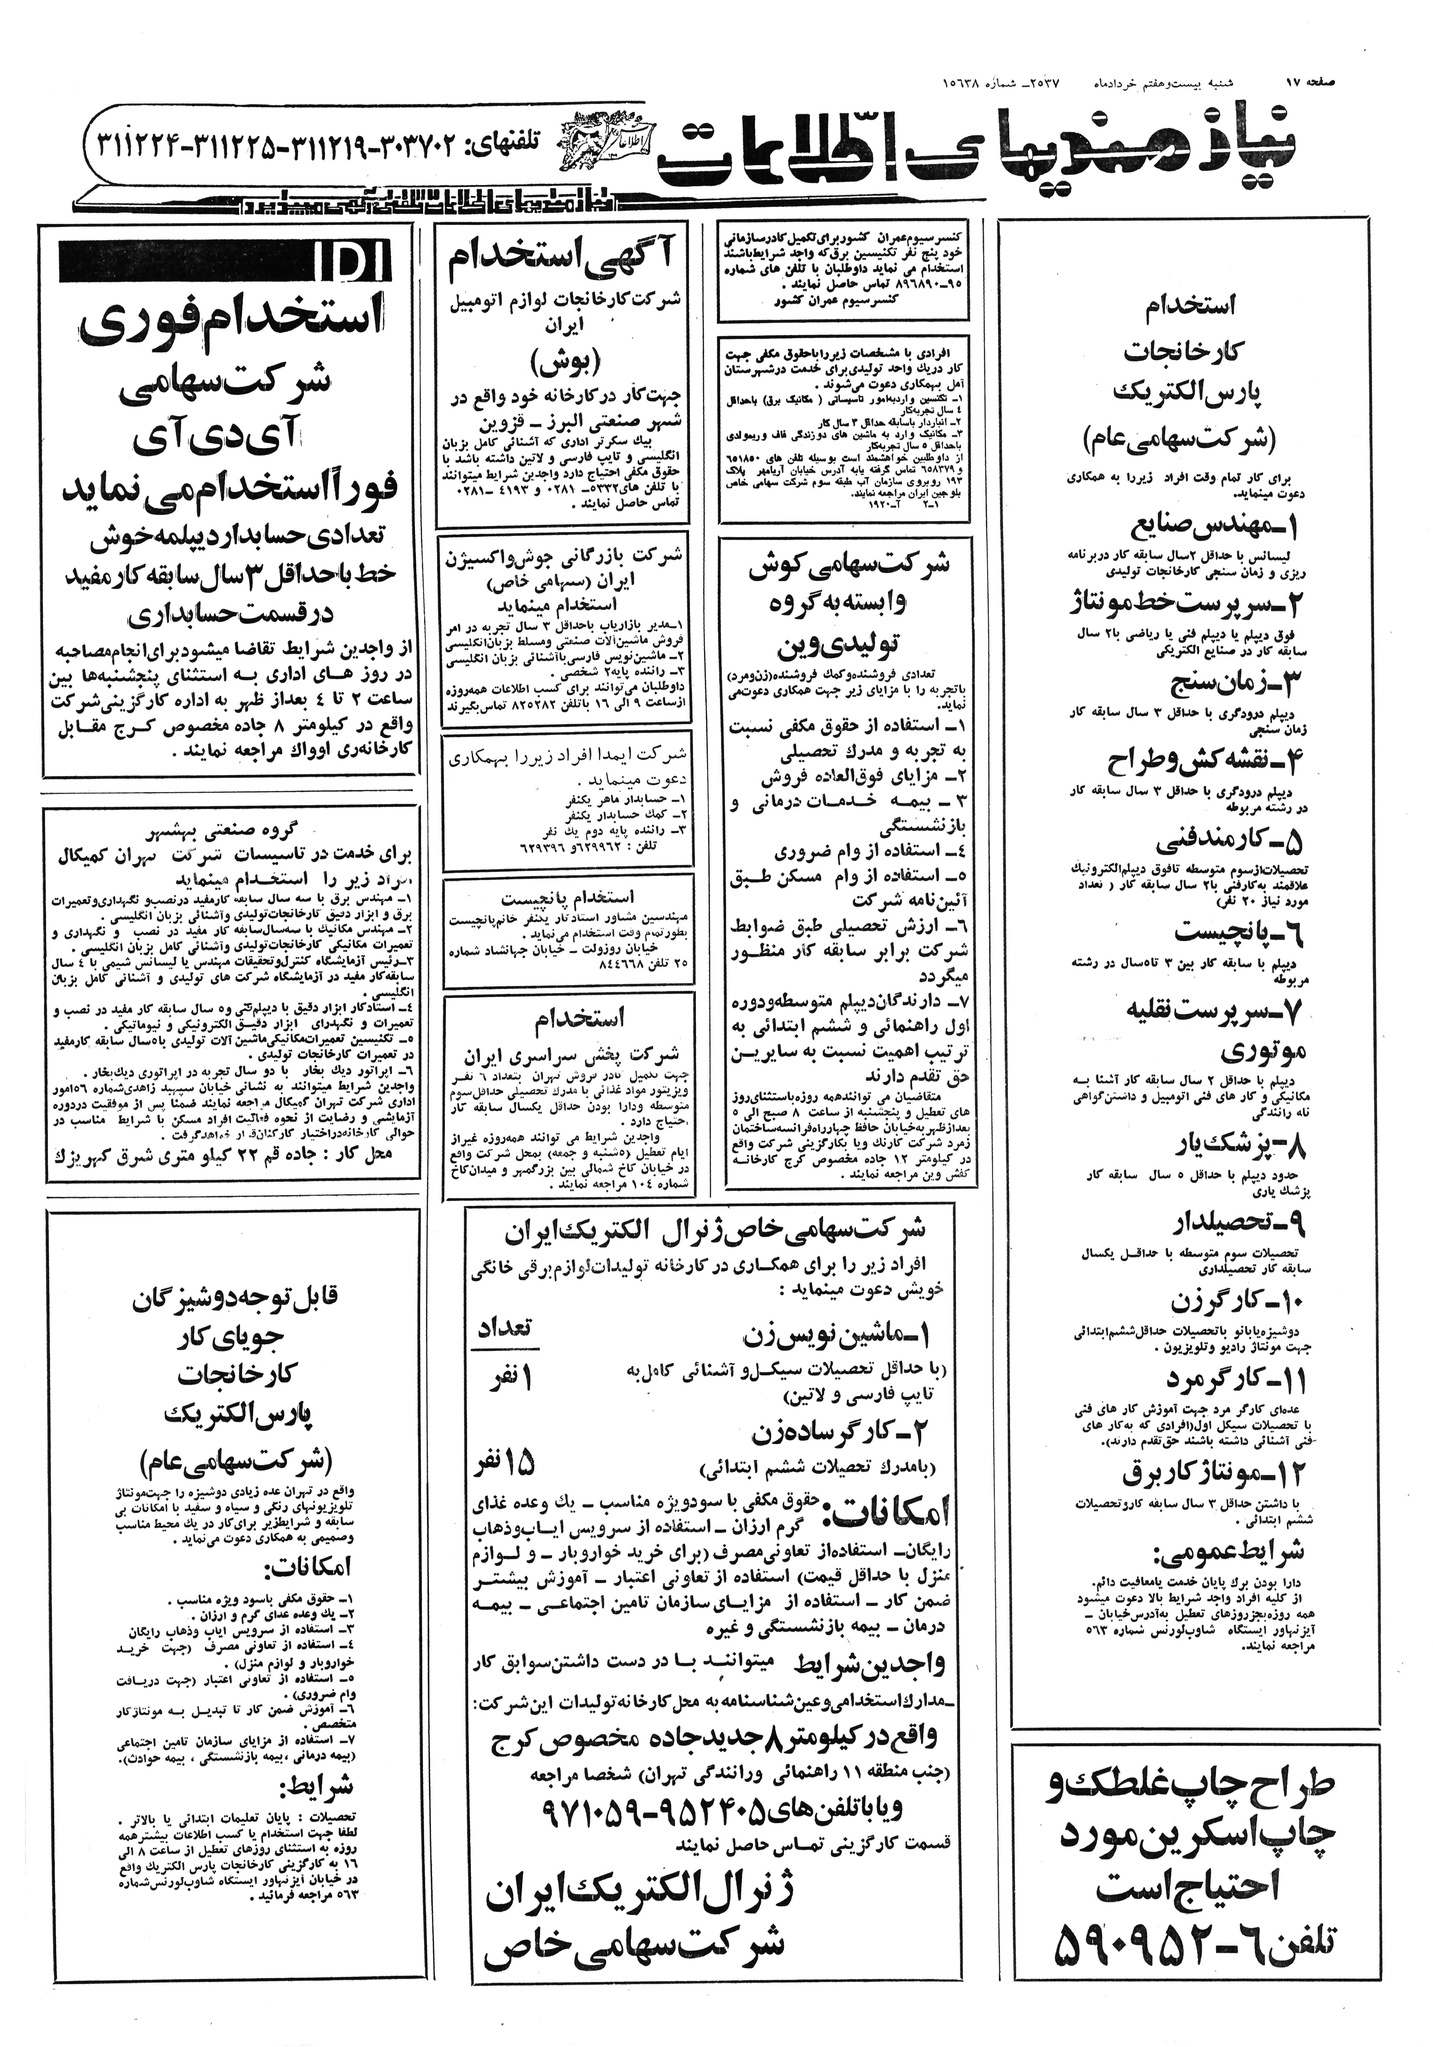 صفحه ۱۷
شنبه بیست‌وهفتم خردادماه ۲۵۳۷ـ شماره ۱۵۶۳۸
نیازمندیهای اطلاعات
تلفنهای: ۳۰۳۷۰۲-۳۱۱۲۱۹-۳۱۱۲۲۵-۳۱۱۲۲۴
نیازمندیهای اطلاعات تلفنی آگهی میپذیرد
استخدام
کارخانجات
پارس الکتریک
(شرکت سهامی عام)
برای کار تمام وقت افراد زیررا به همکاری
دعوت مینماید.
۱ـ مهندس صنایع
لیسانس با حداقل ۲سال سابقه کار دربرنامه
ریزی و زمان سنجی کارخانجات تولیدی
۲ـ سرپرست خط مونتاژ
فوق دیپلم یا دیپلم فنی یا ریاضی با۲ سال
سابقه کار در صنایع الکتریکی
۳ـ زمان سنج
دیپلم درودگری با حداقل ۳ سال سابقه کار
زمان سنجی
۴ـ نقشه کش و طراح
دیپلم درودگری با حداقل ۳ سال سابقه کار
در رشته مربوطه
۵ـ کارمند فنی
تحصیلات‌ازسوم متوسطه تافوق دیپلم‌الکترونیک
علاقمند به‌کارفنی با۲ سال سابقه کار ( تعداد
مورد نیاز ۲۰ نفر)
۶ـ پانچیست
دیپلم با سابقه کار بین ۳ تا۵سال در رشته
مربوطه
۷ـ سرپرست نقلیه
موتوری
دیپلم با حداقل ۲ سال سابقه کار آشنا به
مکانیکی و کار های فنی اتومبیل و داشتن‌گواهی
نامه رانندگی
۸ـ پزشک یار
حدود دیپلم با حداقل ۵ سال سابقه کار
پزشک یاری
۹ـ تحصیلدار
تحصیلات سوم متوسطه با حداقل یکسال
سابقه کار تحصیلداری
۱۰ـ کارگر زن
دوشیزه‌یابانو باتحصیلات حداقل‌ششم‌ابتدائی
جهت مونتاژ رادیو وتلویزیون .
۱۱ـ کارگر مرد
عده‌ای کارگر مرد جهت آموزش کار های فنی
با تحصیلات سیکل اول(افرادی که به‌کار های
فنی آشنائی داشته باشند حق‌تقدم دارند).
۱۲ـ مونتاژ کار برق
با داشتن حداقل ۳ سال سابقه کاروتحصیلات
ششم ابتدائی .
شرایط عمومی:
دارا بودن برگ پایان خدمت یامعافیت دائم.
از کلیه افراد واجد شرایط بالا دعوت میشود
همه روزه‌بجزروزهای تعطیل به‌آدرس‌خیابان ـ
آیزنهاور ایستگاه شاوب‌لورنس شماره ۵۶۳
مراجعه نمایند.
طراح چاپ غلطک و
چاپ اسکرین مورد
احتیاج است
تلفن ۶-۵۹۰۹۵۲
کنسرسیوم‌عمران کشوربرای‌تکمیل‌کادرسازمانی
خود پنج نفر تکنیسین برق‌که واجد شرایط‌باشند
استخدام می نماید داوطلبان با تلفن های شماره
۹۵-۸۹۶۸۹۰ تماس حاصل نمایند .
کنسرسیوم عمران کشور
افرادی با مشخصات زیرراباحقوق مکفی جهت
کار دریک واحد تولیدی‌برای خدمت درشهرستان
آمل بهمکاری دعوت می‌شوند .
۱ـ تکنسین واردبه‌امور تاسیساتی ( مکانیک برق) باحداقل
٤ سال تجربه‌کار
۲ـ انباردار باسابقه حداقل ۳ سال کار
۳ـ مکانیک وارد به ماشین های دوزندگی فاف وریمولدی
باحداقل ۵ سال تجربه‌کار
از داوطلبین خواهشمند است بوسیله تلفن های ٦۵۱۸۵۰
و ٦۵۸۳۷۹ تماس گرفته یابه آدرس خیابان آریامهر پلاک
۱۹۳ روبروی سازمان آب طبقه سوم شرکت سهامی خاص
بلوچین ایران مراجعه نمایند.
۲-۱ آ-۱۹۲۰
شرکت سهامی کوش
وابسته به گروه
تولیدی وین
تعدادی فروشنده‌وکمک فروشنده(زن‌ومرد)
باتجربه را با مزایای زیر جهت همکاری دعوت‌می
نماید.
۱ـ استفاده از حقوق مکفی نسبت
به تجربه و مدرک تحصیلی
۲ـ مزایای فوق‌العاده فروش
۳ ـ بیمه خدمات درمانی و
بازنشستگی
٤ـ استفاده از وام ضروری
۵ـ استفاده از وام مسکن طبق
آئین‌نامه شرکت
٦ـ ارزش تحصیلی طبق ضوابط
شرکت برابر سابقه کار منظور
میگردد
۷ـ دارندگان‌دیپلم متوسطه‌ودوره
اول راهنمائی و ششم ابتدائی به
ترتیب اهمیت نسبت به سایرین
حق تقدم دارند
متقاضیان می توانندهمه روزه‌باستثنای‌روز
های تعطیل و پنجشنبه از ساعت ۸ صبح الی ۵
بعدازظهربه‌خیابان حافظ چهارراه‌فرانسه‌ساختمان
زمرد شرکت کارنک ویا بکارگزینی شرکت واقع
در کیلومتر ۱۲ جاده مخصوص کرج کارخانه
کفش وین مراجعه نمایند .
آگهی استخدام
شرکت‌کارخانجات لوازم اتومبیل
ایران
(بوش)
جهت‌کار در کارخانه خود واقع در
شهر صنعتی البرز ـ قزوین
بیک سکرتر اداری که آشنائی کامل بزبان
انگلیسی و تایپ فارسی و لاتین داشته باشد با
حقوق مکفی احتیاج دارد واجدین شرایط میتوانند
با تلفن های۵۳۳۲ـ ۰۲۸۱ و ٤۱۹۳ ـ۰۲۸۱
تماس حاصل نمایند .
شرکت بازرگانی جوش‌واکسیژن
ایران (سهامی خاص)
استخدام مینماید
۱ـ‌مدیر بازاریاب باحداقل ۳ سال تجربه در امر
فروش ماشین‌آلات صنعتی ومسلط بزبان‌انگلیسی
۲ـ ماشین‌نویس فارسی‌باآشنائی بزبان انگلیسی
۳ـ راننده پایه۲ شخصی .
داوطلبان می‌توانند برای کسب اطلاعات همه‌روزه
ازساعت ۹ الی ۱٦ باتلفن ۸۲۵۲۸۲ تماس‌بگیرند
شرکت ایمدا افراد زیررا بهمکاری
دعوت مینماید .
۱ـ حسابدار ماهر یکنفر
۲ـ کمک حسابدار یکنفر
۳ـ راننده پایه دوم یک نفر
تلفن : ٦۲۹۹٦۲و ٦۲۹۳۹٦
استخدام پانچیست
مهندسین مشاور استاد کار یکنفر خانم‌پانچیست
بطورتمام وقت استخدام می‌نماید .
خیابان روزولت ـ خیابان جهانشاد شماره
۲۵ تلفن ۸٤٤٦٦۸
استخدام
شرکت پخش سراسری ایران
جهت تکمیل کادر فروش تهران بتعداد ٦ نفر
ویزیتور مواد غذائی با مدرک تحصیلی حداقل‌سوم
متوسطه ودارا بودن حداقل یکسال سابقه کار
احتیاج دارد .
واجدین شرایط می توانند همه‌روزه غیراز
ایام تعطیل (۵شنبه و جمعه) بمحل شرکت واقع
در خیابان کاخ شمالی بین بزرگمهر و میدان‌کاخ
شماره ۱۰٤ مراجعه نمایند .
شرکت سهامی خاص ژنرال الکتریک ایران
افراد زیر را برای همکاری در کارخانه تولیدات‌لوازم‌برقی خانگی
خویش دعوت مینماید :
۱ـ ماشین نویس زن تعداد
(با حداقل تحصیلات سیکل‌و آشنائی کامل‌به ۱ نفر
تایپ فارسی و لاتین)
۲ـ کارگر ساده زن
(بامدرک تحصیلات ششم ابتدائی) ۱۵ نفر
امکانات: حقوق مکفی با سودویژه مناسب ـ یک وعده غذای
گرم ارزان ـ استفاده از سرویس ایاب‌وذهاب
رایگان‌ـ استفاده‌از تعاونی‌مصرف (برای خرید خواروبار ـ و لوازم
منزل با حداقل قیمت) استفاده از تعاونی اعتبار ـ آموزش بیشتر
ضمن کار ـ استفاده از مزایای سازمان تامین اجتماعی ـ بیمه
درمان ـ بیمه بازنشستگی و غیره
واجدین شرایط میتوانند با در دست داشتن سوابق کار
ـ مدارک استخدامی وعین شناسنامه به محل کارخانه تولیدات این شرکت:
واقع در کیلومتر ۸ جدید جاده مخصوص کرج
(جنب منطقه ۱۱ راهنمائی ورانندگی تهران) شخصا مراجعه
ویا با تلفن های ۹۵۲۴۰۵-۹۷۱۰۵۹
قسمت کارگزینی تماس حاصل نمایند
ژنرال الکتریک ایران
شرکت سهامی خاص
IDI
استخدام فوری
شرکت سهامی
آی دی آی
فوراً استخدام می نماید
تعدادی حسابدار دیپلمه خوش
خط با حداقل ۳ سال سابقه کار مفید
در قسمت حسابداری
از واجدین شرایط تقاضا میشود برای انجام مصاحبه
در روز های اداری به استثنای پنجشنبه‌ها بین
ساعت ۲ تا ٤ بعداز ظهر به اداره کارگزینی شرکت
واقع در کیلومتر ۸ جاده مخصوص کرج مقابل
کارخانه‌ری اوواک مراجعه نمایند .
گروه صنعتی بهشهر
برای خدمت در تاسیسات شرکت تهران کمیکال
افراد زیر را استخدام مینماید
۱ـ مهندس برق با سه سال سابقه کارمفید درنصب‌و نگهداری‌وتعمیرات
برق و ابزار دقیق کارخانجات‌تولیدی وآشنائی بزبان انگلیسی .
۲ـ مهندس مکانیک با سه‌سال‌سابقه کار مفید در نصب و نگهداری و
تعمیرات مکانیکی کارخانجات‌تولیدی وآشنائی کامل بزبان انگلیسی .
۳ـ‌رئیس آزمایشگاه کنترل‌وتحقیقات مهندس یا لیسانس شیمی با ٤ سال
سابقه‌کار مفید در آزمایشگاه شرکت های تولیدی و آشنائی کامل بزبان
انگلیسی .
٤ـ استادکار ابزار دقیق با دیپلم‌فنی و۵ سال سابقه کار مفید در نصب و
تعمیرات و نگهدرای ابزار دقیق الکترونیکی و نیوماتیکی .
۵ـ تکنیسین تعمیرات‌مکانیکی‌ماشین آلات تولیدی با۵سال سابقه کارمفید
در تعمیرات کارخانجات تولیدی .
٦ـ اپراتور دیگ بخار با دو سال تجربه در اپراتوری دیگ‌بخار .
واجدین شرایط میتوانند به نشانی خیابان سپهبد زاهدی‌شماره ۱۵٦امور
اداری شرکت تهران کمیکال مراجعه نمایند ضمنا پس از موفقیت دردوره
آزمایشی و رضایت از نحوه فعالیت افراد مسکن با شرایط مناسب در
حوالی کارخانه‌دراختیار کارکنان‌قرار خواهدگرفت .
محل کار : جاده قم ۲۲ کیلو متری شرق کهریزک
قابل توجه دوشیزگان
جویای کار
کارخانجات
پارس الکتریک
(شرکت سهامی عام)
واقع در تهران عده زیادی دوشیزه را جهت‌مونتاژ
تلویزیونهای رنگی و سیاه و سفید با امکانات بی
سابقه و شرایط‌زیر برای‌کار در یک محیط مناسب
وصمیمی به همکاری دعوت می‌نماید .
امکانات:
۱ـ حقوق مکفی باسود ویژه مناسب .
۲ـ یک وعده غذای گرم و ارزان .
۳ـ استفاده از سرویس ایاب وذهاب رایگان
٤ـ استفاده از تعاونی مصرف (جهت خرید
خواروبار و لوازم منزل) .
۵ـ استفاده از تعاونی اعتبار (جهت دریافت
وام ضروری) .
٦ـ آموزش ضمن کار تا تبدیل به مونتاژکار
متخصص .
۷ـ استفاده از مزایای سازمان تامین اجتماعی
(بیمه درمانی ،بیمه بازنشستگی ، بیمه حوادث).
شرایط:
تحصیلات : پایان تعلیمات ابتدائی یا بالاتر .
لطفا جهت استخدام یا کسب اطلاعات بیشترهمه
روزه به استثنای روزهای تعطیل از ساعت ۸ الی
۱٦ به کارگزینی کارخانجات پارس الکتریک واقع
در خیابان آیزنهاور ایستگاه شاوب‌لورنس‌شماره
۵٦۳ مراجعه فرمائید .